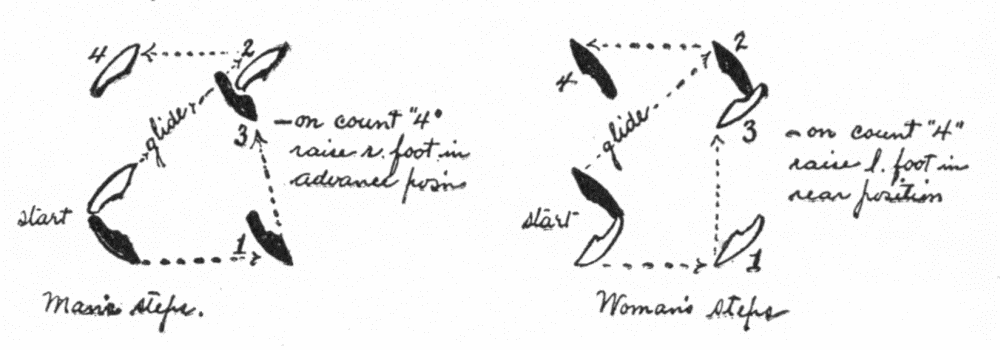 4 2
glide
3
—on count "4"
raise r. foot in
advance posn
start
1
Man's steps.
2
4
glide
3
—on count "4"
raise l. foot in
rear position
start
1
Woman's steps